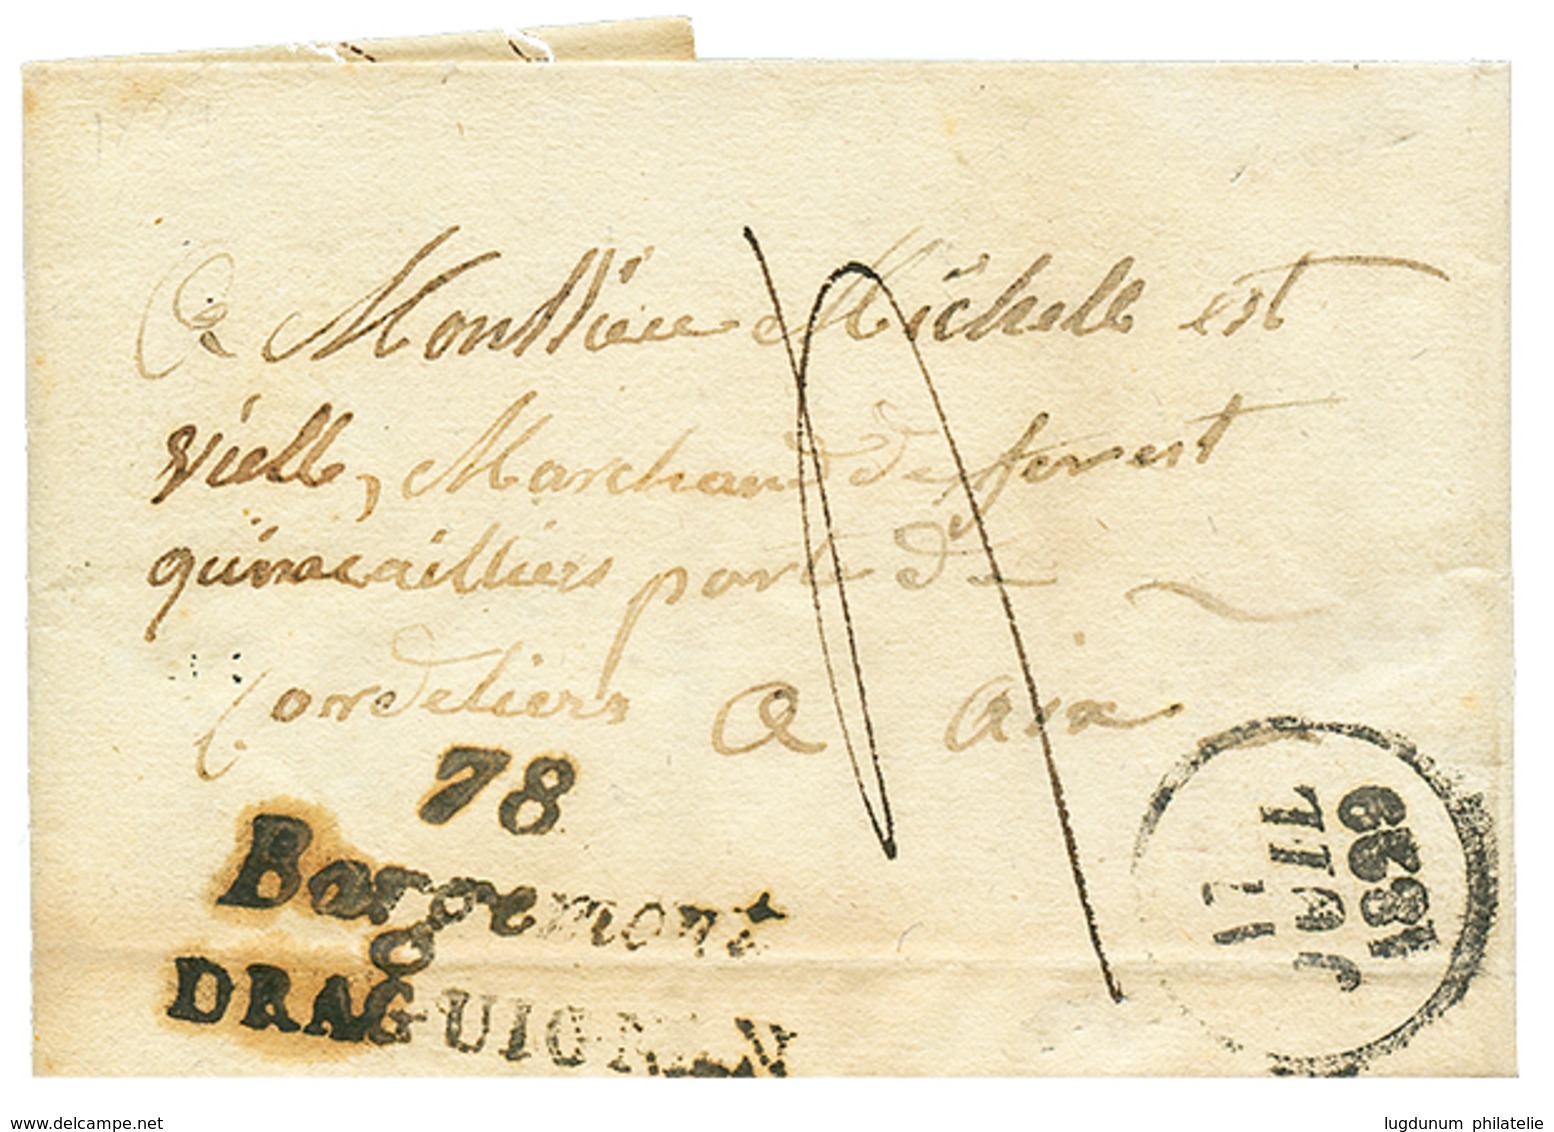 a Monssieu Michell est
vielle, Marchand de fer est
quincailliers porte de
Cordeliers a aix
78
Bargemont
DRAGUIGNAN
17
JUIL
1829
www.delcampe.net
lugdunum philatelie